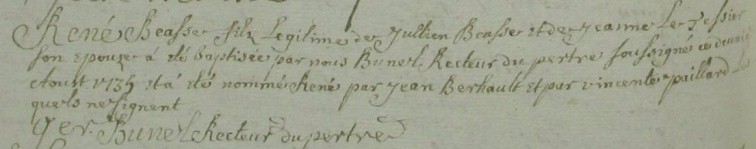 René Beasse fils Legitime de Jullien Beasse et de Jeanne Le Tessier
son Epouze á été baptisée par nous Bunel Recteur du pertre soussigné ce
Aoust 1735 et á été nommé René par Jean Berhault et par vincente paillard
quels ne signent
Bunel Recteur du pertre